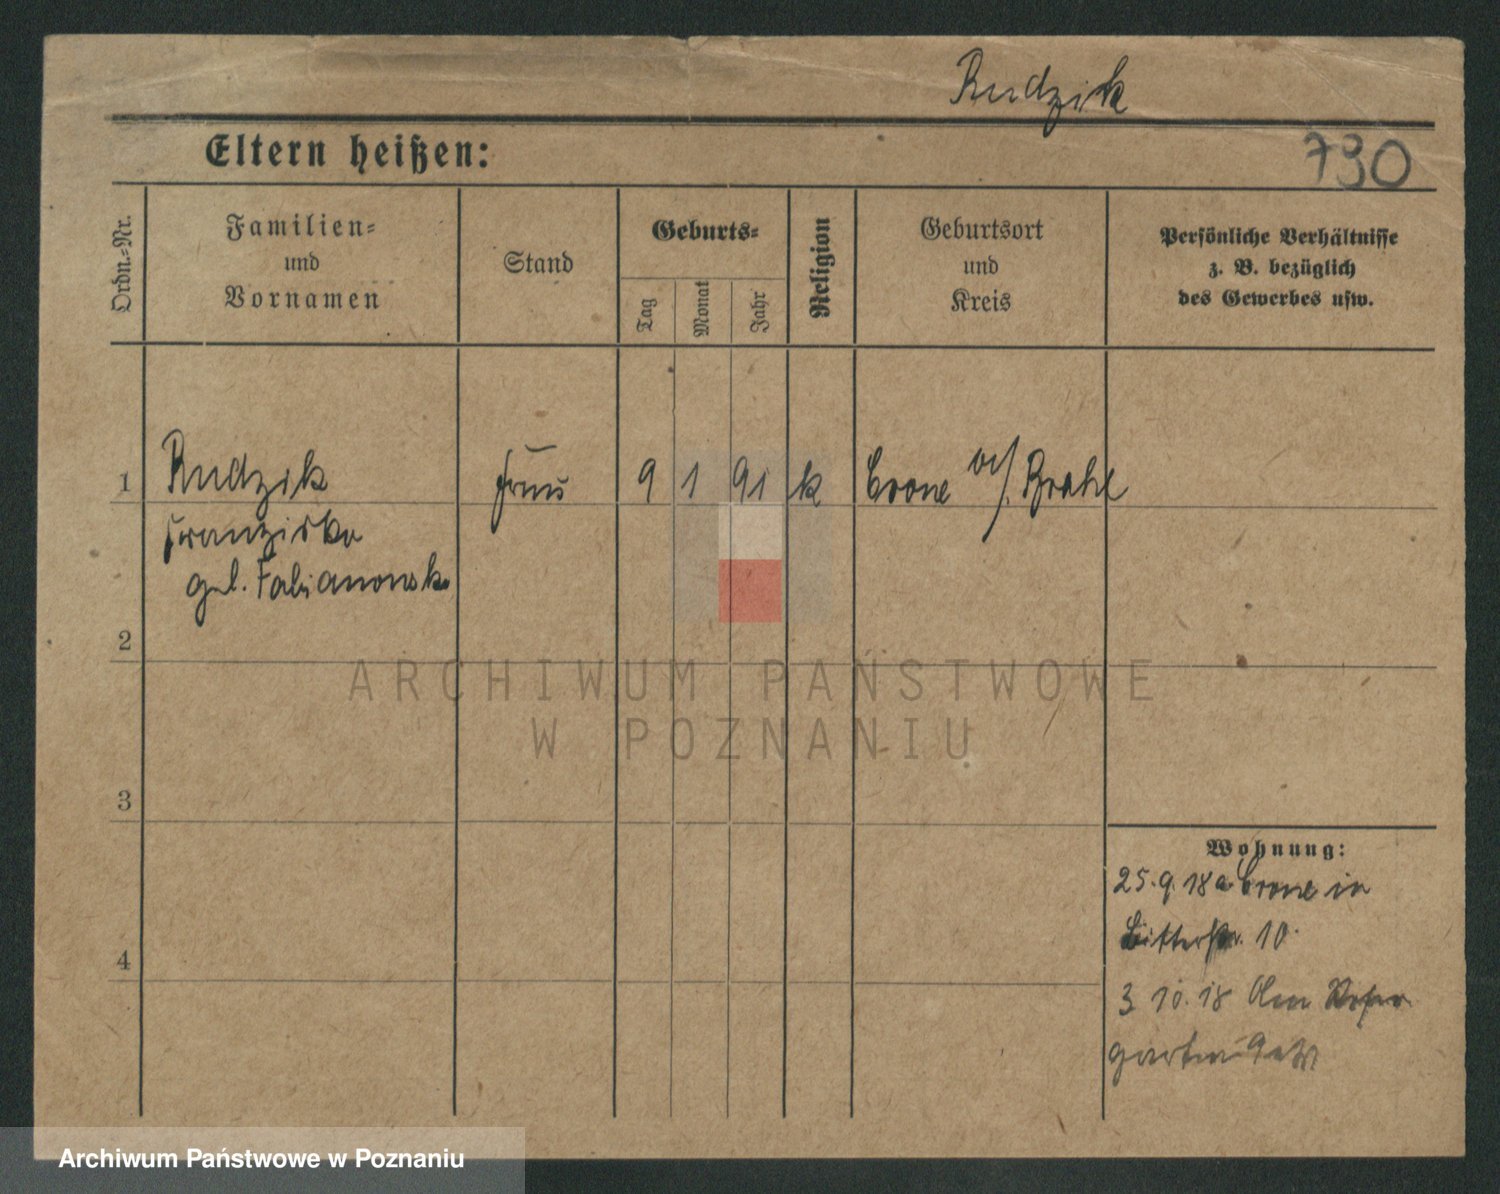 Rudzik
Eltern heißen:
790
Ordn.-Nr.
Familien-
und
Vornamen
Stand
Geburts-
Tag
Monat
Jahr
Religion
Geburtsort
und
Kreis
Persönliche Verhältnisse
z. B. bezüglich
des Gewerbes usw.
1
Rudzik
Frau
9
1
91
k
Crone a/. Brahe
Franziska
geb. Fabianowska
2
ARCHIWUM PAŃSTWOWE
W POZNANIU
3
Wohnung:
25.9.18 a Crone in
Bitterstr. 10.
4
3 10. 18 Am
garten
Archiwum Państwowe w Poznaniu